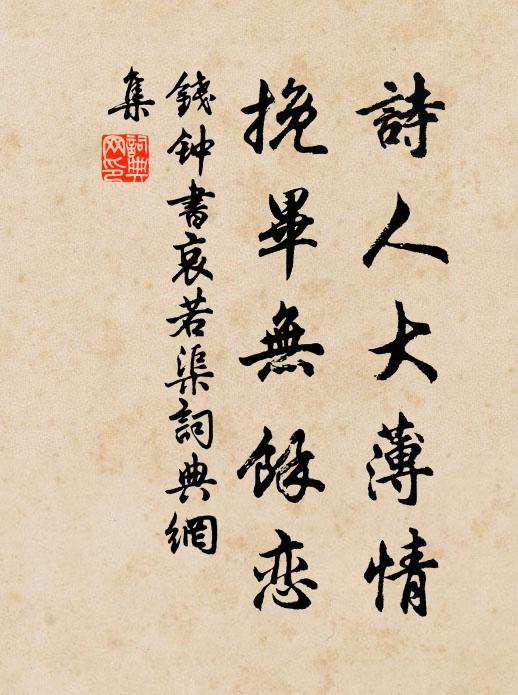 詩人大薄情
挽畢無餘恋
錢钟書哀若渠詞典網
集
詞典
网印